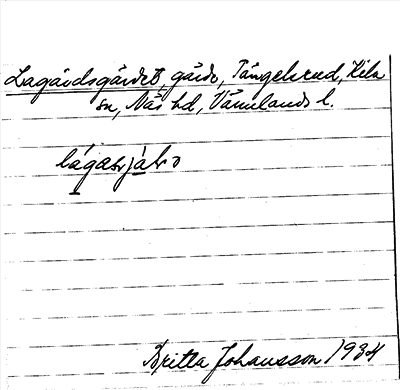 Lagårdsgärdet, gärde, Tångelsrud, Kila
sn, Näs hd, Värmlands l.
Britta Johansson 1934